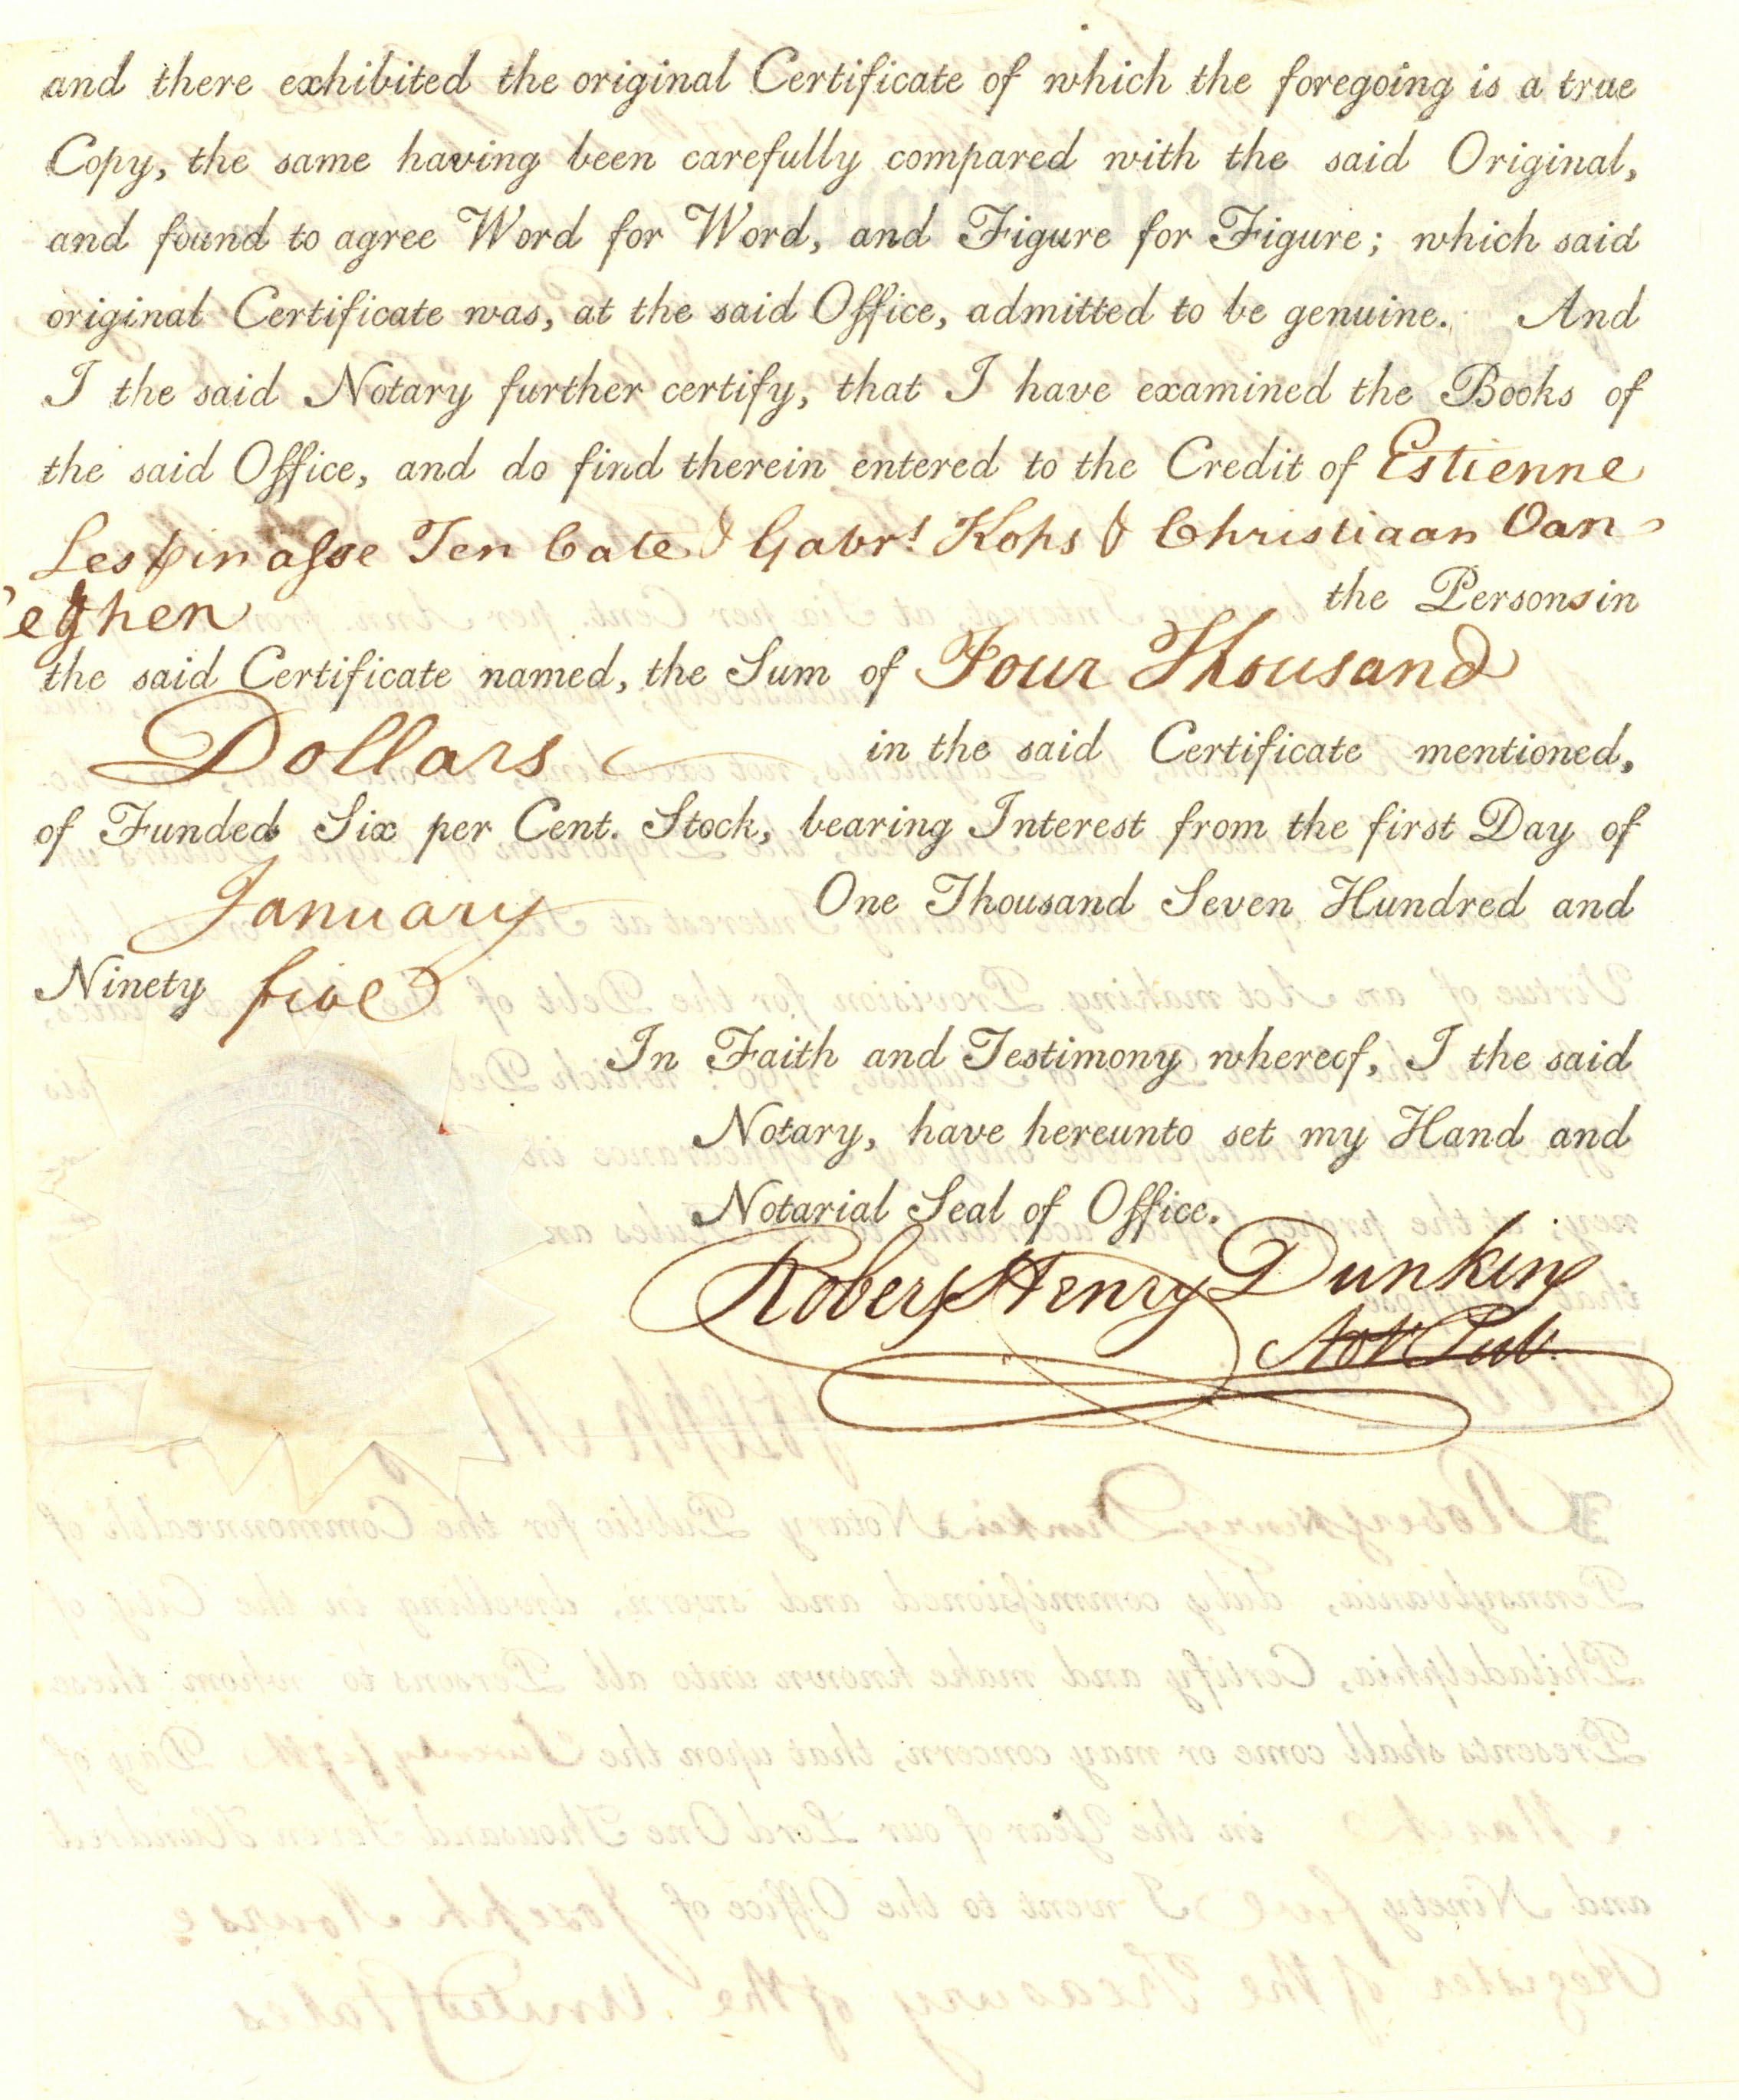 and there exhibited the original Certificate of which the foregoing is a true
Copy, the same having been carefully compared with the said Original,
and found to agree Word for Word, and Figure for Figure; which said
original Certificate was, at the said Office, admitted to be genuine. And
I the said Notary further certify, that I have examined the Books of
the said Office, and do find therein entered to the Credit of Estienne
Lespinasse Ten Cate & Gabr! Kops & Christiaan Van
Eghen
the Persons in
the said Certificate named, the Sum of Four Thousand
Dollars in the said Certificate mentioned,
of Funded Six per Cent. Stock, bearing Interest from the first Day of
January One Thousand Seven Hundred and
Ninety five
In Faith and Testimony whereof, I the said
Notary, have hereunto set my Hand and
Notarial Seal of Office.
Robert Henry Dunkin
Not Pub.